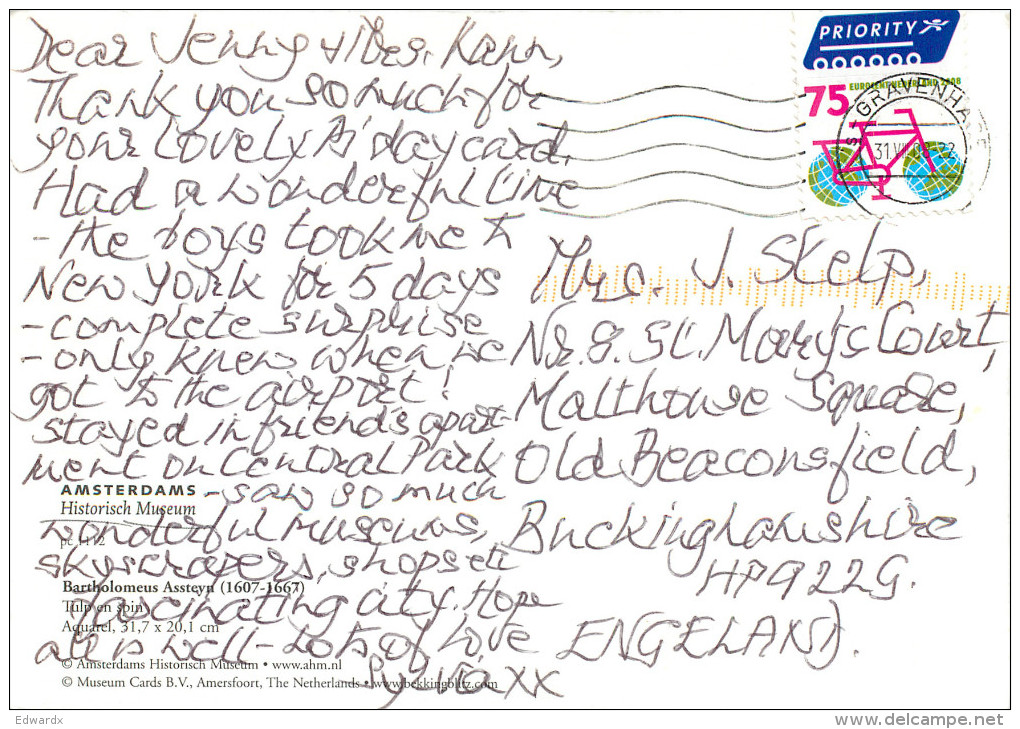 Dear Jenny + Mrs. Kann,
Thank you so much for
your lovely B'day card.
Had a wonderful time
- the boys took me to
New York for 5 days
- complete surprise
- only knew when we
got to the airport!
stayed in friends apart-
ment on Central Park
- saw so much
wonderful museums,
skyscrapers, shops etc
fascinating city. Hope
all is well - Lots of love
Sylvia xx
PRIORITY
EUROCENT NEDERLAND 2008
75
'S-GRAVENHAGE
31 VII 08-22
Mrs. J. Skelp,
Nr. 8. St. Mary's Court,
Malthouse Square,
Old Beaconsfield,
Buckinghamshire
HP9 2LG.
ENGELAND.
AMSTERDAMS
Historisch Museum
pc 1112
Bartholomeus Assteyn (1607-1667)
Tulp en spin
Aquarel, 31,7 x 20,1 cm
© Amsterdams Historisch Museum • www.ahm.nl
© Museum Cards B.V., Amersfoort, The Netherlands • www.bekkingblitz.com
Edwardx
www.delcampe.net